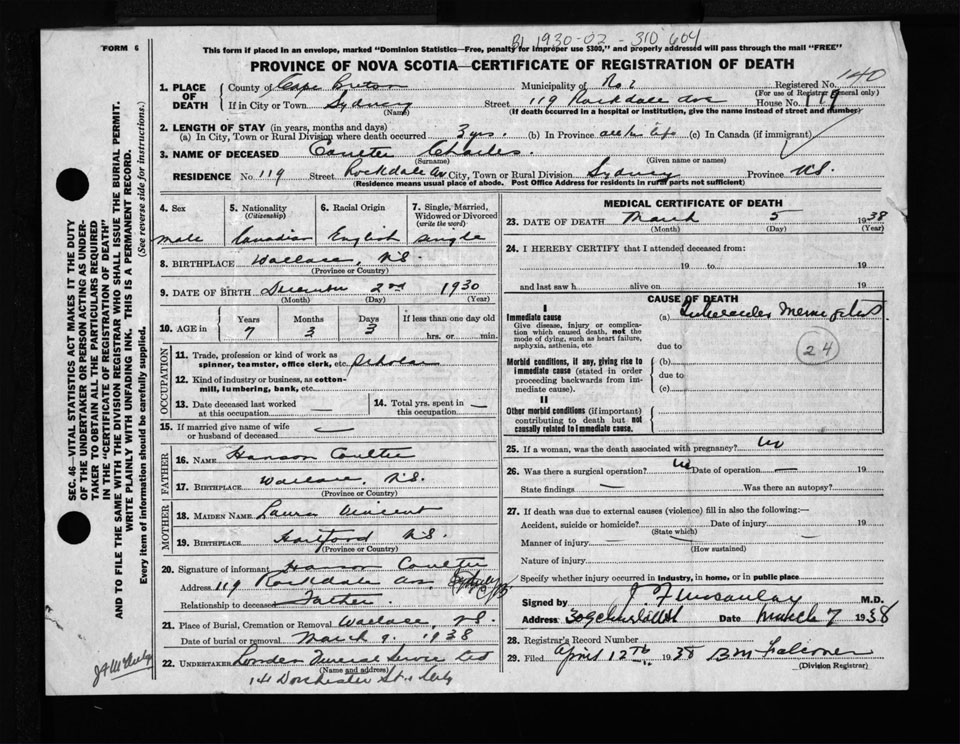 FORM 6
B1 1930-02-310604
This form if placed in an envelope, marked "Dominion Statistics—Free, penalty for improper use $300," and properly addressed will pass through the mail "FREE"
PROVINCE OF NOVA SCOTIA—CERTIFICATE OF REGISTRATION OF DEATH
1. PLACE OF DEATH County of Cape Breton Municipality of No: Registered No. 140
(For use of Registrar General only)
If in City or Town Sydney Street 119 Rockdale Ave House No. 119
(Name) (If death occurred in a hospital or institution, give the name instead of street and number)
2. LENGTH OF STAY (in years, months and days)
(a) In City, Town or Rural Division where death occurred 3 yrs. (b) In Province all his life (c) In Canada (if immigrant)
3. NAME OF DECEASED Coulter Charles.
(Surname) (Given name or names)
RESIDENCE No. 119 Street Rockdale Av City, Town or Rural Division Sydney Province N.S.
(Residence means usual place of abode. Post Office Address for residents in rural parts not sufficient)
4. Sex 5. Nationality (Citizenship) 6. Racial Origin 7. Single, Married, Widowed or Divorced (write the word)
male Canadian English single
8. BIRTHPLACE Wallace, N.S.
(Province or Country)
9. DATE OF BIRTH December 2nd 1930
(Month) (Day) (Year)
10. AGE in Years Months Days If less than one day old
7 3 3 hrs. or min.
OCCUPATION
11. Trade, profession or kind of work as spinner, teamster, office clerk, etc. Scholar
12. Kind of industry or business, as cotton-mill, lumbering, bank, etc.
13. Date deceased last worked at this occupation — 14. Total yrs. spent in this occupation —
15. If married give name of wife or husband of deceased —
FATHER
16. NAME Hanson Coulter
17. BIRTHPLACE Wallace, N.S.
(Province or Country)
MOTHER
18. MAIDEN NAME Laura Vincent
19. BIRTHPLACE Hartford N.S.
(Province or Country)
20. Signature of informant Hanson Coulter
Address 119 Rockdale Av. Sydney C/B
Relationship to deceased Father
21. Place of Burial, Cremation or Removal Wallace, N.S.
Date of burial or removal March 9. 1938
22. UNDERTAKER Funeral Service Ltd
(Name and address)
141 Dorchester St.,
MEDICAL CERTIFICATE OF DEATH
23. DATE OF DEATH March 5 1938
(Month) (Day) (Year)
24. I HEREBY CERTIFY that I attended deceased from:
19 to 19
and last saw h alive on 19
CAUSE OF DEATH
I
Immediate cause (a) Tubercular Meningitis
Give disease, injury or complication which caused death, not the mode of dying, such as heart failure, asphyxia, asthenia, etc
due to
24
Morbid conditions, if any, giving rise to immediate cause (stated in order proceeding backwards from immediate cause). (b)
due to
(c)
II
Other morbid conditions (if important) contributing to death but not causally related to immediate cause.
25. If a woman, was the death associated with pregnancy? no
26. Was there a surgical operation? no Date of operation — 19
State findings — Was there an autopsy?
27. If death was due to external causes (violence) fill in also the following:—
Accident, suicide or homicide? Date of injury 19
(State which)
Manner of injury —
(How sustained)
Nature of injury
Specify whether injury occurred in industry, in home, or in public place
Signed by M.D.
Address: Date March 7 1938
28. Registrar's Record Number
29. Filed April 12th 1938 B M Falconer
(Division Registrar)
SEC. 46—VITAL STATISTICS ACT MAKES IT THE DUTY OF THE UNDERTAKER OR PERSON ACTING AS UNDERTAKER TO OBTAIN ALL THE PARTICULARS REQUIRED IN THE "CERTIFICATE OF REGISTRATION OF DEATH" AND TO FILE THE SAME WITH THE DIVISION REGISTRAR WHO SHALL ISSUE THE BURIAL PERMIT.
WRITE PLAINLY WITH UNFADING INK. THIS IS A PERMANENT RECORD.
Every item of information should be carefully supplied. (See reverse side for instructions.)